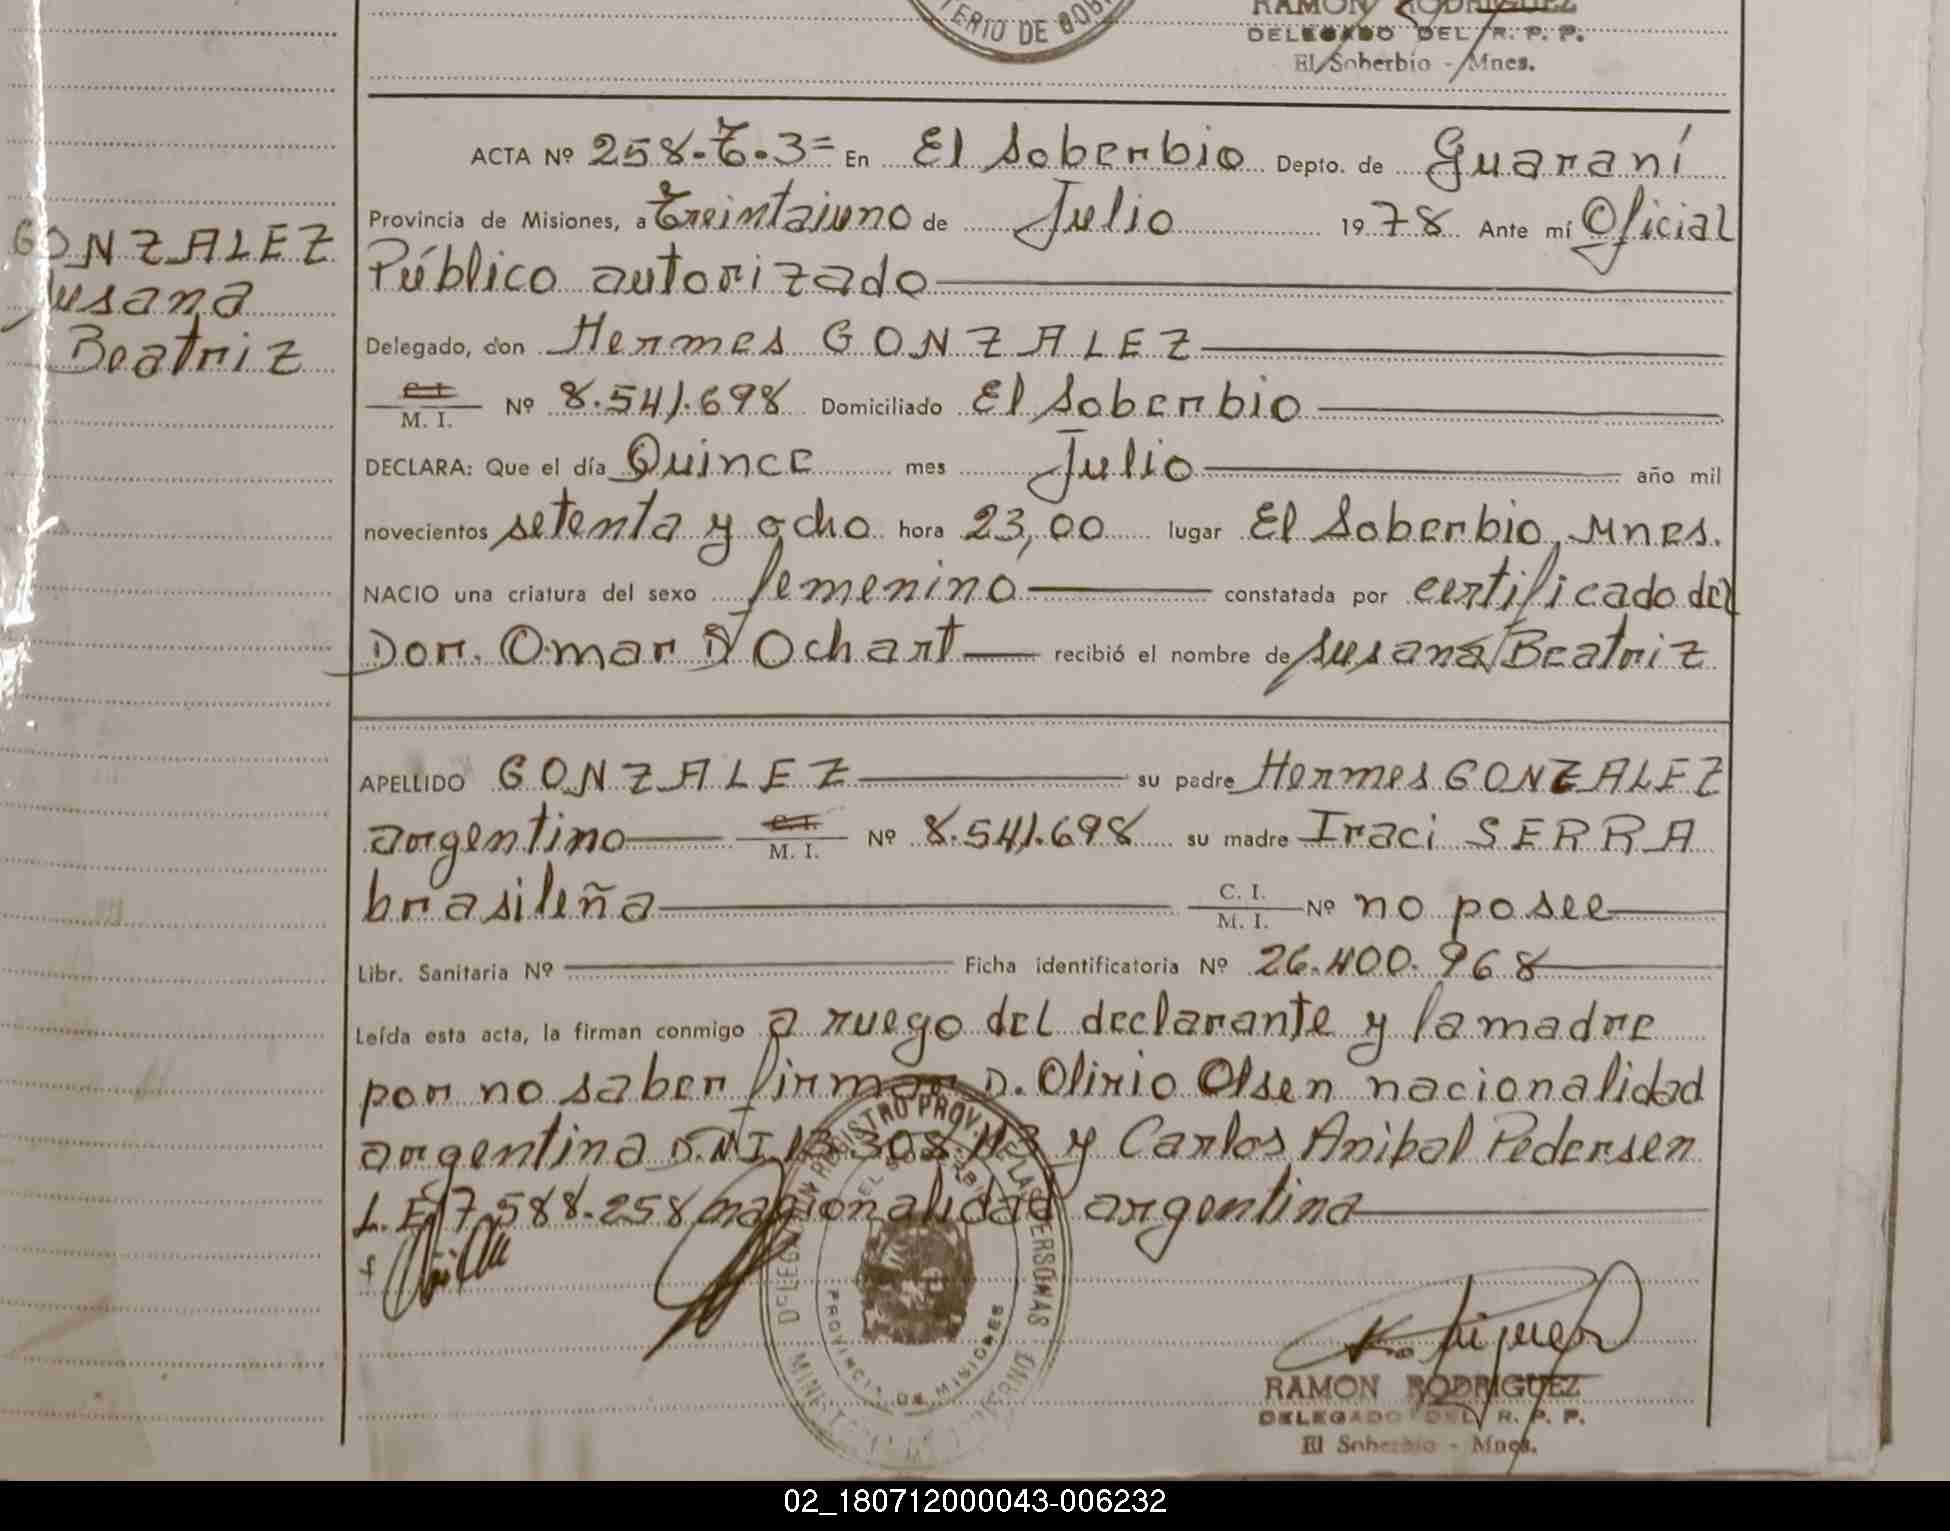 TERIO DE GOB
RAMON RODRIGUEZ
DELEGADO DEL R. P. P.
El Soberbio - Mnes.
GONZALEZ
Susana
Beatriz
ACTA Nº 258-T-3= En El Soberbio Depto. de Guaraní
Provincia de Misiones, a Treintaiuno de Julio 1978 Ante mí Oficial
Público autorizado
Delegado, don Hermes GONZALEZ
C.I.
M. I. Nº 8.541.698 Domiciliado El Soberbio
DECLARA: Que el día Quince mes Julio año mil
novecientos setenta y ocho hora 23,00 lugar El Soberbio, Mnes.
NACIO una criatura del sexo femenino constatada por certificado del
Dor. Omar D Ochart recibió el nombre de Susana Beatriz
APELLIDO GONZALEZ su padre Hermes GONZALEZ
argentino C.I. M. I. Nº 8.541.698 su madre Iraci SERRA
brasileña C. I. M. I. Nº no posee
Libr. Sanitaria Nº Ficha identificatoria Nº 26.400.968
Leída esta acta, la firman conmigo a ruego del declarante y la madre
por no saber firmar D. Olirio Olsen nacionalidad
argentina D.N.I. 13.308. y Carlos Anibal Pedersen
L.E. 7.588.258 nacionalidad argentina
DELEGACION REGISTRO PROV. DE LAS PERSONAS
EL SOBERBIO
PROVINCIA DE MISIONES
MINISTERIO DE GOBIERNO
RAMON RODRIGUEZ
DELEGADO DEL R. P. P.
El Soberbio - Mnes.
02_180712000043-006232